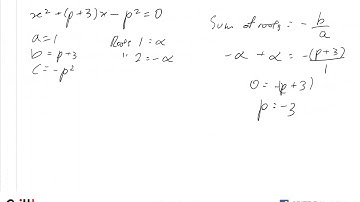 x² + (p+3)x - p² = 0
a = 1
b = p+3
c = -p²
Roots 1 = α
" 2 = -α
Sum of roots = - b/a
-α + α = -(p+3)/1
0 = -(p+3)
p = -3